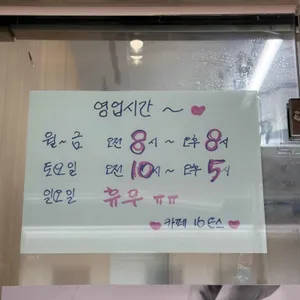 영업시간 ~ ♥
월~금 오전 8시 ~ 오후 8시
토요일 오전 10시 ~ 오후 5시
일요일 휴무 ㅠㅠ
♥ 카페 16온스 ♥